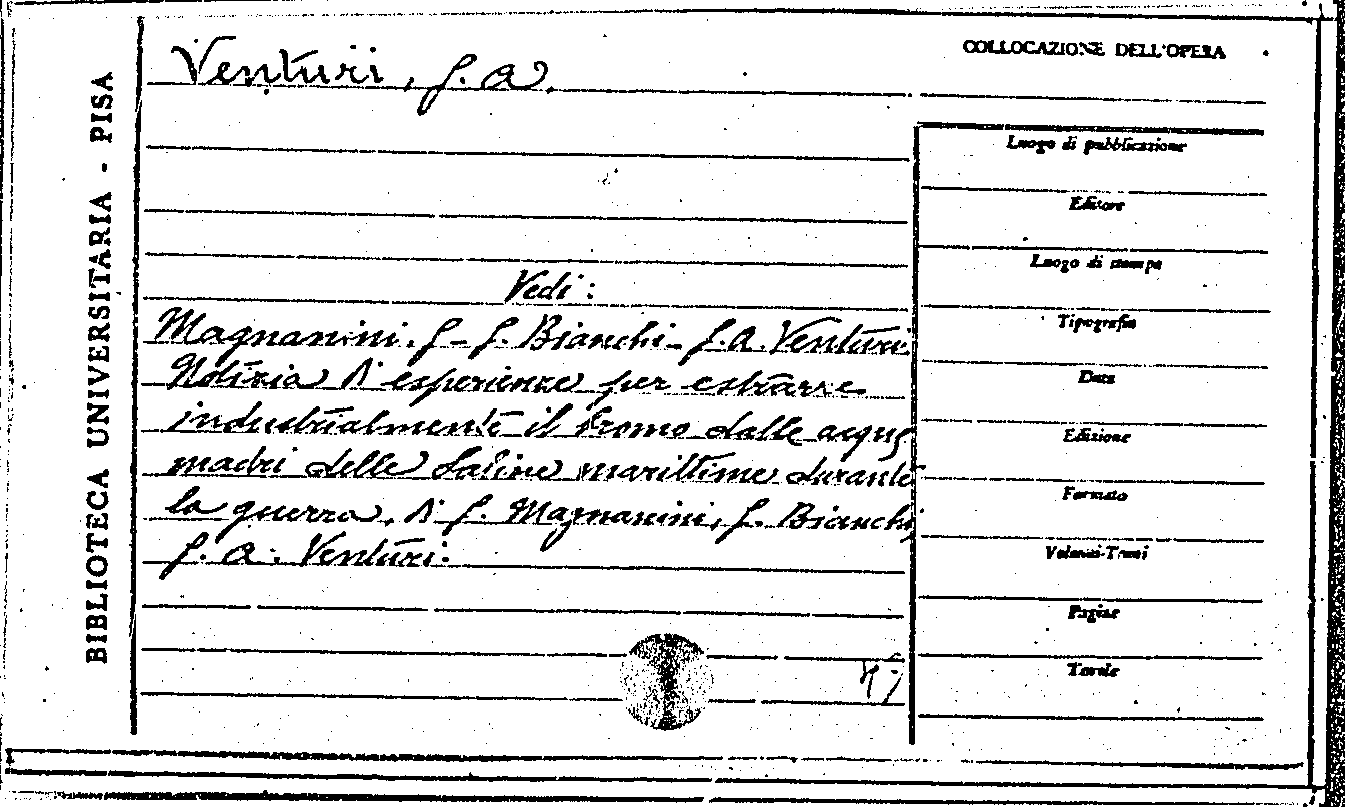 BIBLIOTECA UNIVERSITARIA - PISA
Venturi, G. A.
COLLOCAZIONE DELL'OPERA
Vedi:
Magnanini. G - G. Bianchi - G. A. Venturi.
Notizia d'esperienze per estrarre
industrialmente il bromo dalle acque
madri delle saline marittime durante
la guerra, di G. Magnanini, G. Bianchi,
G. A. Venturi.
Luogo di pubblicazione
Editore
Luogo di stampa
Tipografia
Data
Edizione
Formato
Volumi-Tomi
Pagine
Tavole